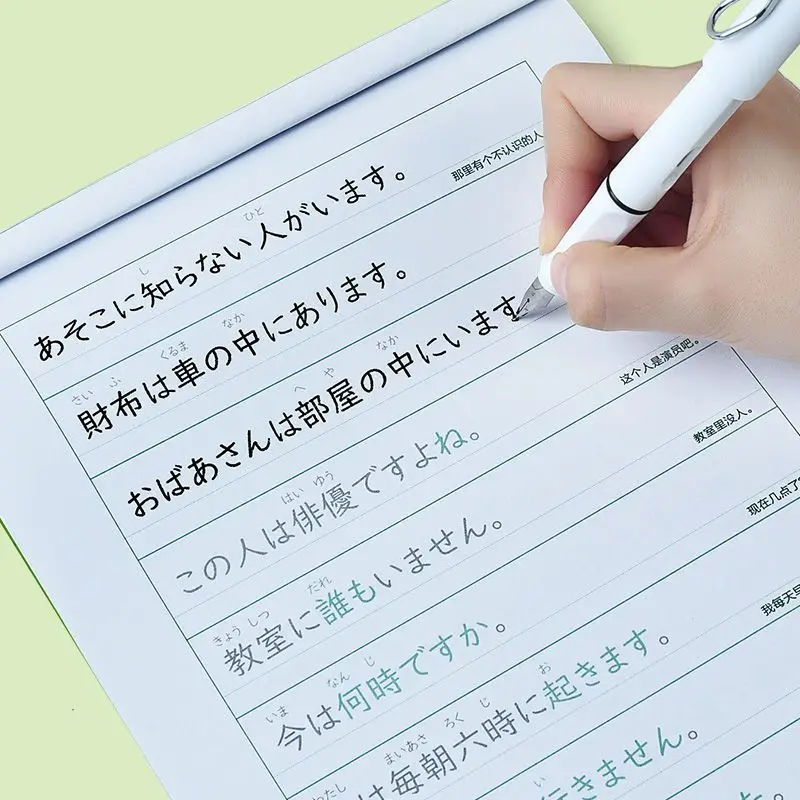 し ひと
あそこに知らない人がいます。
那里有个不认识的人
さい ふ くるま なか
財布は車の中にあります。
へ や なか
おばあさんは部屋の中にいます
はい ゆう
この人は俳優ですよね。
这个人是演员吧。
きょう しつ だれ
教室に誰もいません。
教室里没人。
いま なん じ
今は何時ですか。
现在几点了
たし まいあさ ろく じ お
は毎朝六時に起きます。
我每天早
い
行きません。